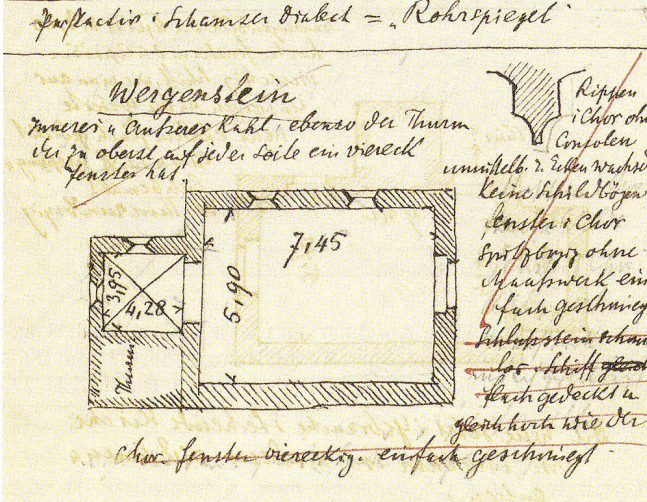 Perspectiv i Schamser Dialect = „Rohrspiegel"
Wergenstein
Inneres u Äusseres Kahl ebenso der Thurm
der zu oberst auf jeder Seite ein viereck
fenster hat.
7,45
5,90
3,95
4,28
Thurm
Rippen
i Chor ohn
Consolen
unmittelb. z. Ecken wachse
Keine Schildbögen
fenster i Chor
Spitzbogig ohne
Maasswerk ein
fach geschmiegt
Schlussstein schmu
los. Schiff
flach gedeckt u
gleich hoch wie der
Chor. fenster viereckig. einfach geschmiegt.